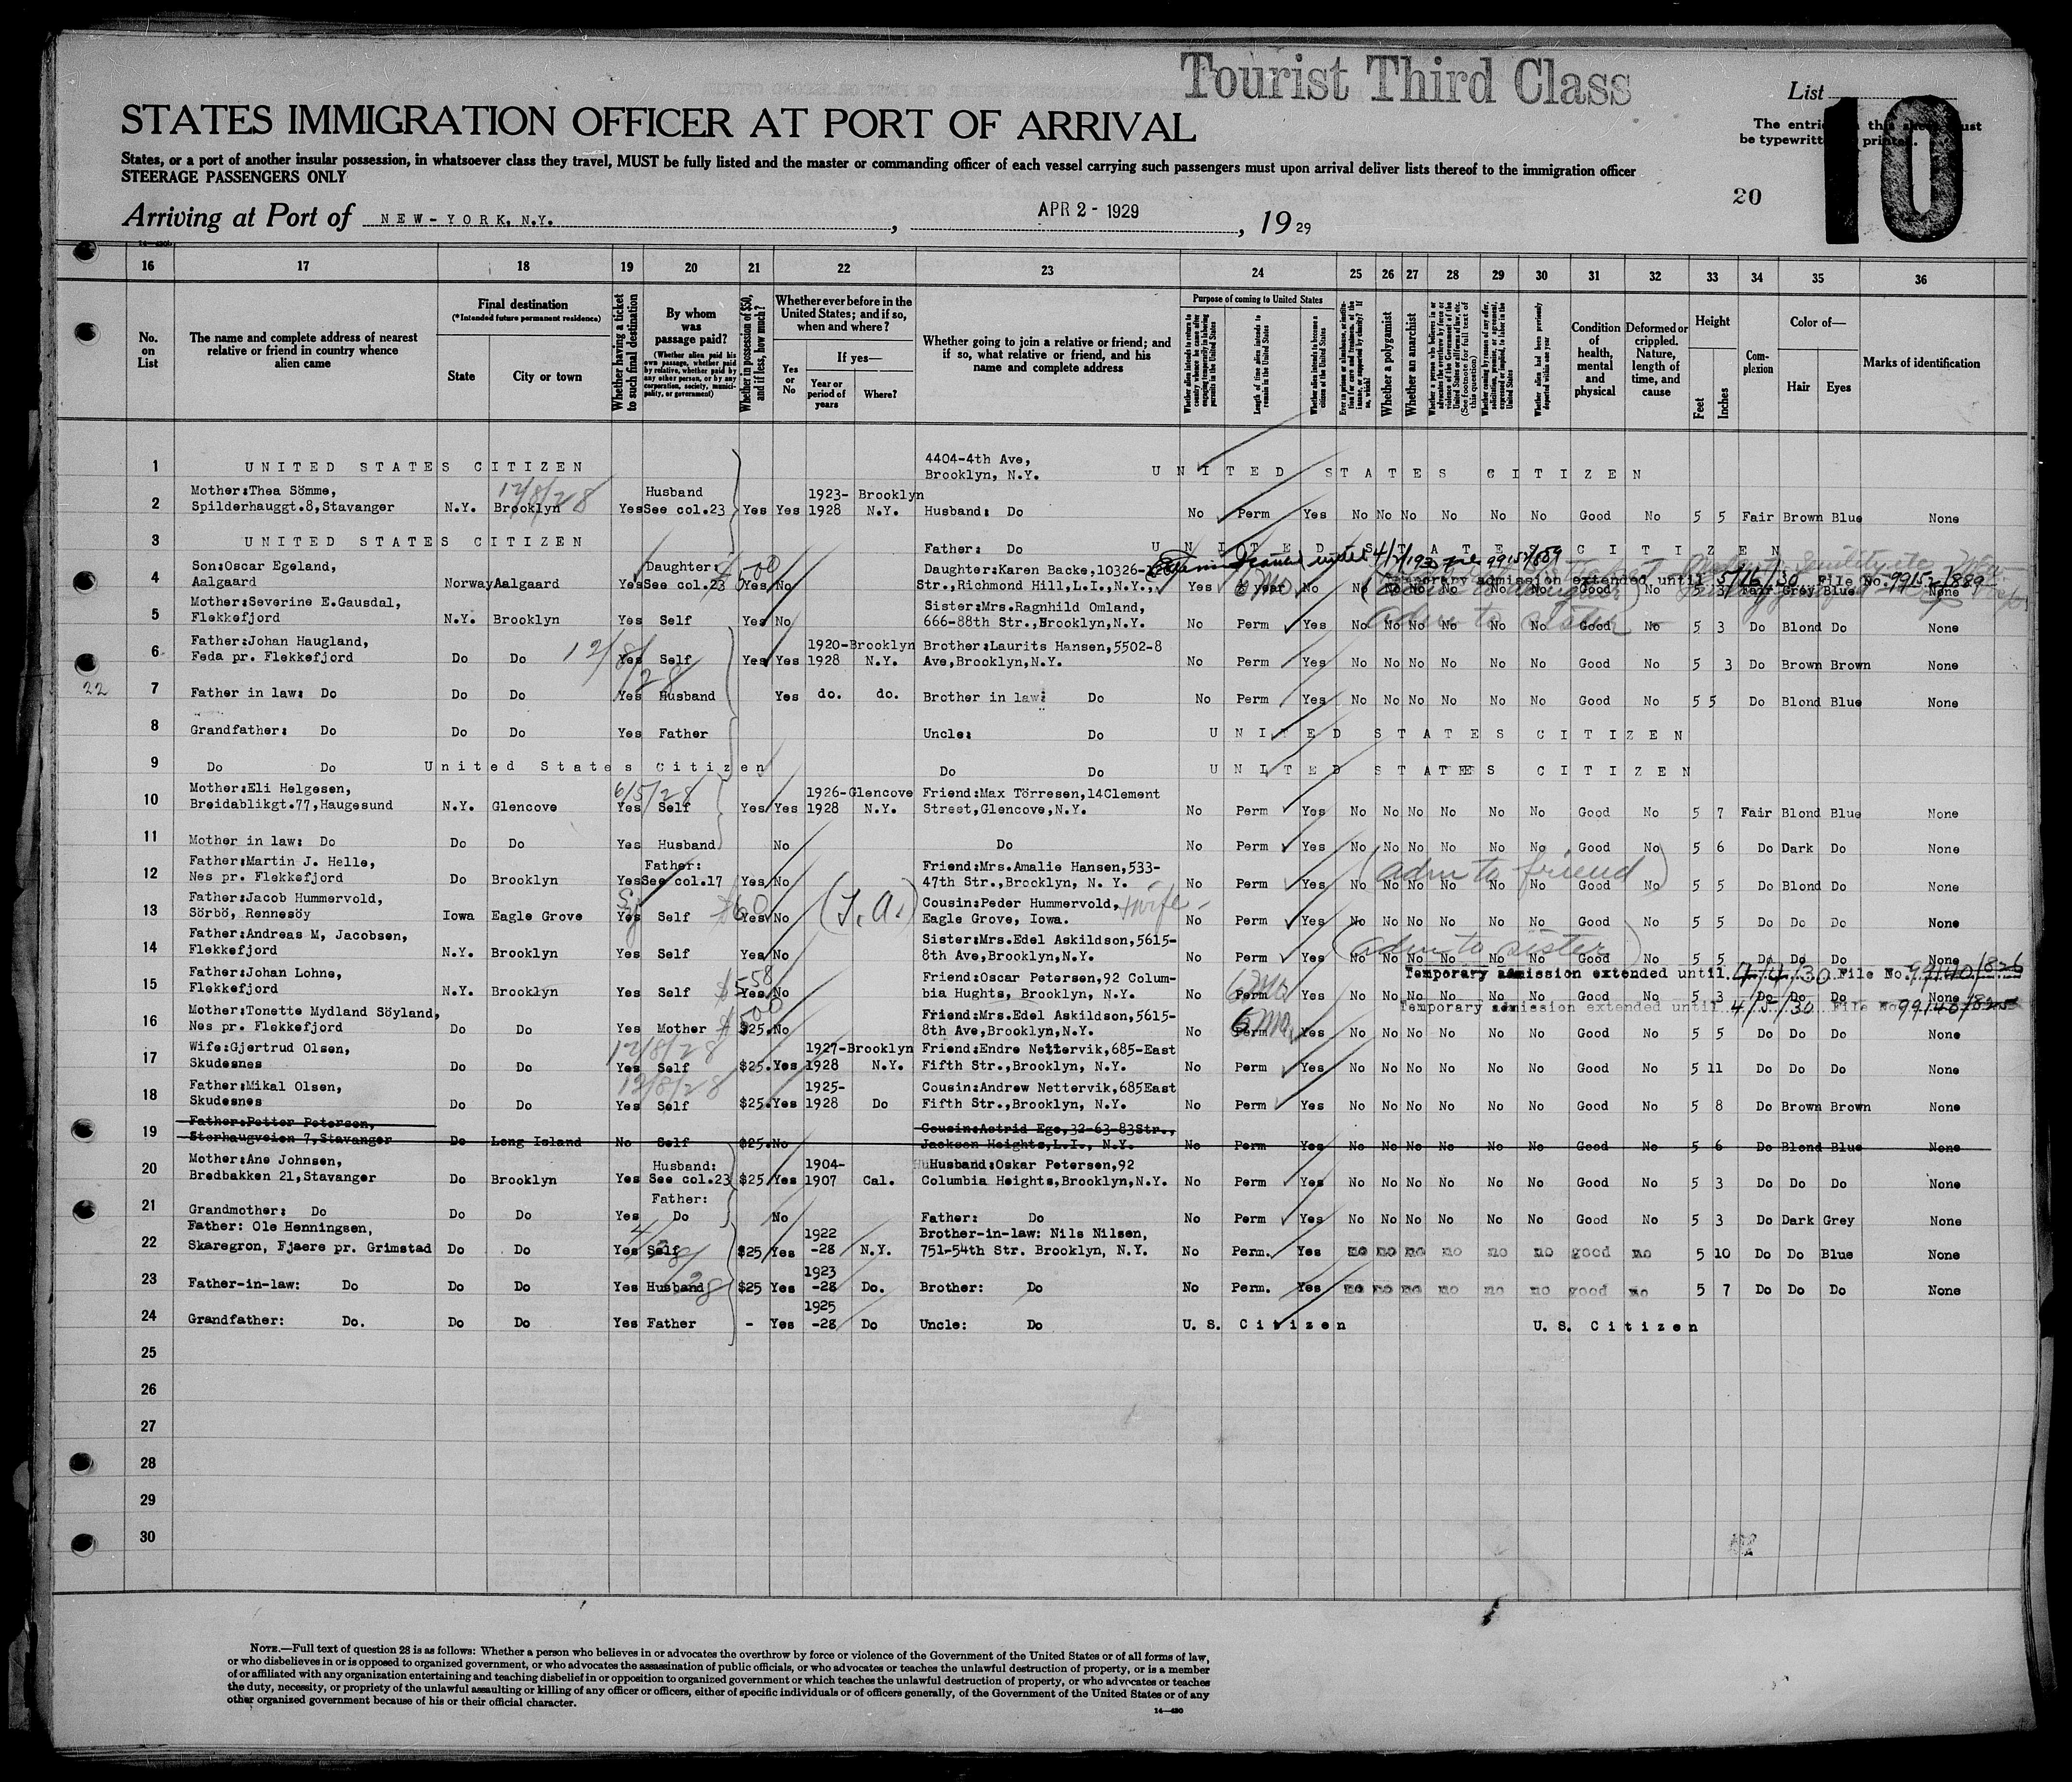 Tourist Third Class
List
10
STATES IMMIGRATION OFFICER AT PORT OF ARRIVAL
The entries on this sheet must
be typewritten or printed.
States, or a port of another insular possession, in whatsoever class they travel, MUST be fully listed and the master or commanding officer of each vessel carrying such passengers must upon arrival deliver lists thereof to the immigration officer
STEERAGE PASSENGERS ONLY
20
Arriving at Port of NEW-YORK, N.Y. , APR 2 - 1929 , 19 29
16 17 18 19 20 21 22 23 24 25 26 27 28 29 30 31 32 33 34 35 36
No. on List
The name and complete address of nearest relative or friend in country whence alien came
Final destination
(*Intended future permanent residence)
State
City or town
Whether having a ticket to such final destination
By whom was passage paid?
(Whether alien paid his own passage, whether paid by relative, whether paid by any other person, or by any corporation, society, municipality, or government)
Whether in possession of $50, and if less, how much?
Whether ever before in the United States; and if so, when and where?
Yes or No
If yes—
Year or period of years
Where?
Whether going to join a relative or friend; and if so, what relative or friend, and his name and complete address
Purpose of coming to United States
Length of time alien intends to remain in the United States
Whether alien intends to become a citizen of the United States
Whether a polygamist
Whether an anarchist
(See footnote for full text of this question)
Condition of health, mental and physical
Deformed or crippled. Nature, length of time, and cause
Height
Feet
Inches
Complexion
Color of—
Hair
Eyes
Marks of identification
1 UNITED STATES CITIZEN 4404-4th Ave, Brooklyn, N.Y. UNITED STATES CITIZEN
12/8/28
2 Mother:Thea Sömme, Spilderhauggt.8,Stavanger N.Y. Brooklyn Yes Husband See col.23 Yes Yes 1923-1928 Brooklyn N.Y. Husband: Do No Perm Yes No No No No No No Good No 5 5 Fair Brown Blue None
3 UNITED STATES CITIZEN Father: Do UNITED STATES CITIZEN
Temporary admission extended until 5/16/30 File No. 99152/889
4 Son:Oscar Egeland, Aalgaard Norway Aalgaard Yes Daughter: See col.23 Yes No Daughter:Karen Backe,10326- Str.,Richmond Hill,L.I.,N.Y., Yes year No No No No No No No Good No 5 3 Fair Grey Blue None
5 Mother:Severine E.Gausdal, Flekkefjord N.Y. Brooklyn Yes Self Yes No Sister:Mrs.Ragnhild Omland, 666-88th Str.,Brooklyn,N.Y. No Perm Yes No No No No No No Good No 5 3 Do Blond Do None
adm to sister
12/8/28
6 Father:Johan Haugland, Feda pr. Flekkefjord Do Do Yes Self Yes Yes 1920-1928 Brooklyn N.Y. Brother:Laurits Hansen,5502-8 Ave,Brooklyn,N.Y. No Perm Yes No No No No No No Good No 5 3 Do Brown Brown None
22
7 Father in law: Do Do Do Yes Husband Yes do. do. Brother in law: Do No Perm Yes No No No No No No Good No 5 5 Do Blond Blue None
8 Grandfather: Do Do Do Yes Father Uncle: Do UNITED STATES CITIZEN
9 Do Do United States Citizen Do Do UNITED STATES CITIZEN
6/5/28
10 Mother:Eli Helgesen, Breidablikgt.77,Haugesund N.Y. Glencove Yes Self Yes Yes 1926-1928 Glencove N.Y. Friend:Max Törresen,14Clement Street,Glencove,N.Y. No Perm Yes No No No No No No Good No 5 7 Fair Blond Blue None
11 Mother in law: Do Do Do Yes Husband No Do No Perm Yes No No No No No No Good No 5 6 Do Dark Do None
12 Father:Martin J. Helle, Nes pr. Flekkefjord Do Brooklyn Yes Father: See col.17 Yes No Friend:Mrs.Amalie Hansen,533-47th Str.,Brooklyn, N. Y. No Perm Yes No No No No No No Good No 5 5 Do Blond Do None
(adm to friend)
13 Father:Jacob Hummervold, Sörbö, Rennesöy Iowa Eagle Grove Yes Self $60 Yes No Cousin:Peder Hummervold, + wife Eagle Grove, Iowa. No Perm Yes No No No No No No Good No 5 5 Do Do Do None
14 Father:Andreas M, Jacobsen, Flekkefjord N.Y. Brooklyn Yes Self Yes No Sister:Mrs.Edel Askildson,5615-8th Ave,Brooklyn,N.Y. No Perm Yes No No No No No No Good No 5 5 Do Do Do None
(adm to sister)
Temporary admission extended until 4/4/30 File No. 99140/826
15 Father:Johan Lohne, Flekkefjord N.Y. Brooklyn Yes Self Yes No Friend:Oscar Petersen,92 Columbia Hughts, Brooklyn, N.Y. No Perm 6 mo Yes No No No No No No Good No 5 3 Do Do Do None
Temporary admission extended until 4/5/30 File No. 99140/825
16 Mother:Tonette Mydland Söyland, Nes pr. Flekkefjord Do Do Yes Mother $25. No Friend:Mrs.Edel Askildson,5615-8th Ave,Brooklyn,N.Y. No Perm 6 mo. Yes No No No No No No Good No 5 5 Do Do Do None
12/8/28
17 Wife:Gjertrud Olsen, Skudesnes Do Do Yes Self $25. Yes 1927-1928 Brooklyn N.Y. Friend:Endre Nettervik,685-East Fifth Str.,Brooklyn, N.Y. No Perm Yes No No No No No No Good No 5 11 Do Do Do None
12/8/28
18 Father:Mikal Olsen, Skudesnes Do Do Yes Self $25. Yes 1925-1928 Do Cousin:Andrew Nettervik,685East Fifth Str.,Brooklyn, N.Y. No Perm Yes No No No No No No Good No 5 8 Do Brown Brown None
19 Father:Petter Petersen, Storhaugveien 7,Stavanger Do Long Island No Self $25. No Cousin:Astrid Ege,32-63-83Str., Jackson Heights,L.I., N.Y. No Perm Yes No No No No No No Good No 5 6 Do Blond Blue None
20 Mother:Ane Johnsen, Bredbakken 21,Stavanger Do Brooklyn Yes Husband: See col.23 $25. Yes 1904-1907 Cal. Husband:Oskar Petersen,92 Columbia Heights,Brooklyn,N.Y. No Perm Yes No No No No No No Good No 5 3 Do Do Do None
21 Grandmother: Do Do Do Yes Father: Do No Father: Do No Perm Yes No No No No No No Good No 5 3 Do Dark Grey None
22 Father: Ole Henningsen, Skaregron, Fjaere pr. Grimstad Do Do Yes Self $25 Yes 1922-28 N.Y. Brother-in-law: Nils Nilsen, 751-54th Str. Brooklyn, N.Y. No Perm. Yes no no no no no no good no 5 10 Do Do Blue None
23 Father-in-law: Do Do Do Yes Husband $25 Yes 1923-28 Do. Brother: Do No Perm. Yes no no no no no no good no 5 7 Do Do Do None
24 Grandfather: Do. Do Do Yes Father - Yes 1925-28 Do Uncle: Do U. S. Citizen U. S. Citizen
25
26
27
28
29
30
NOTE.—Full text of question 28 is as follows: Whether a person who believes in or advocates the overthrow by force or violence of the Government of the United States or of all forms of law,
or who disbelieves in or is opposed to organized government, or who advocates the assassination of public officials, or who advocates or teaches the unlawful destruction of property, or is a member
of or affiliated with any organization entertaining and teaching disbelief in or opposition to organized government or which teaches the unlawful destruction of property, or who advocates or teaches
the duty, necessity, or propriety of the unlawful assaulting or killing of any officer or officers, either of specific individuals or of officers generally, of the Government of the United States or of any
other organized government because of his or their official character.
14—480